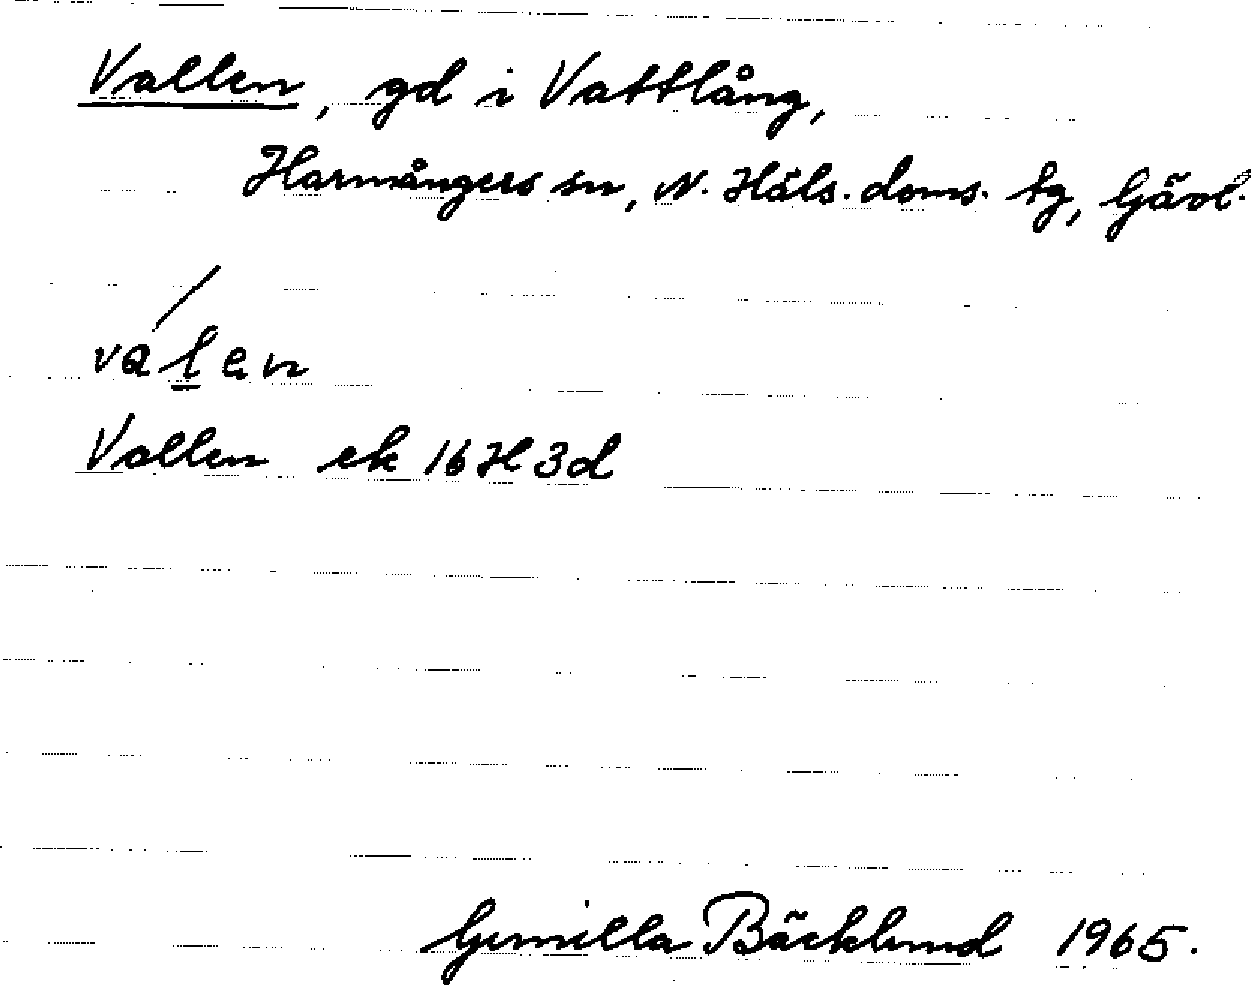 Vallen, gd i Vattlång,
Harmångers sn, N. Häls. doms. tg, Gävl.
va/l̳en
Vallen ek 16H3d
Gunilla Bäcklund 1965.